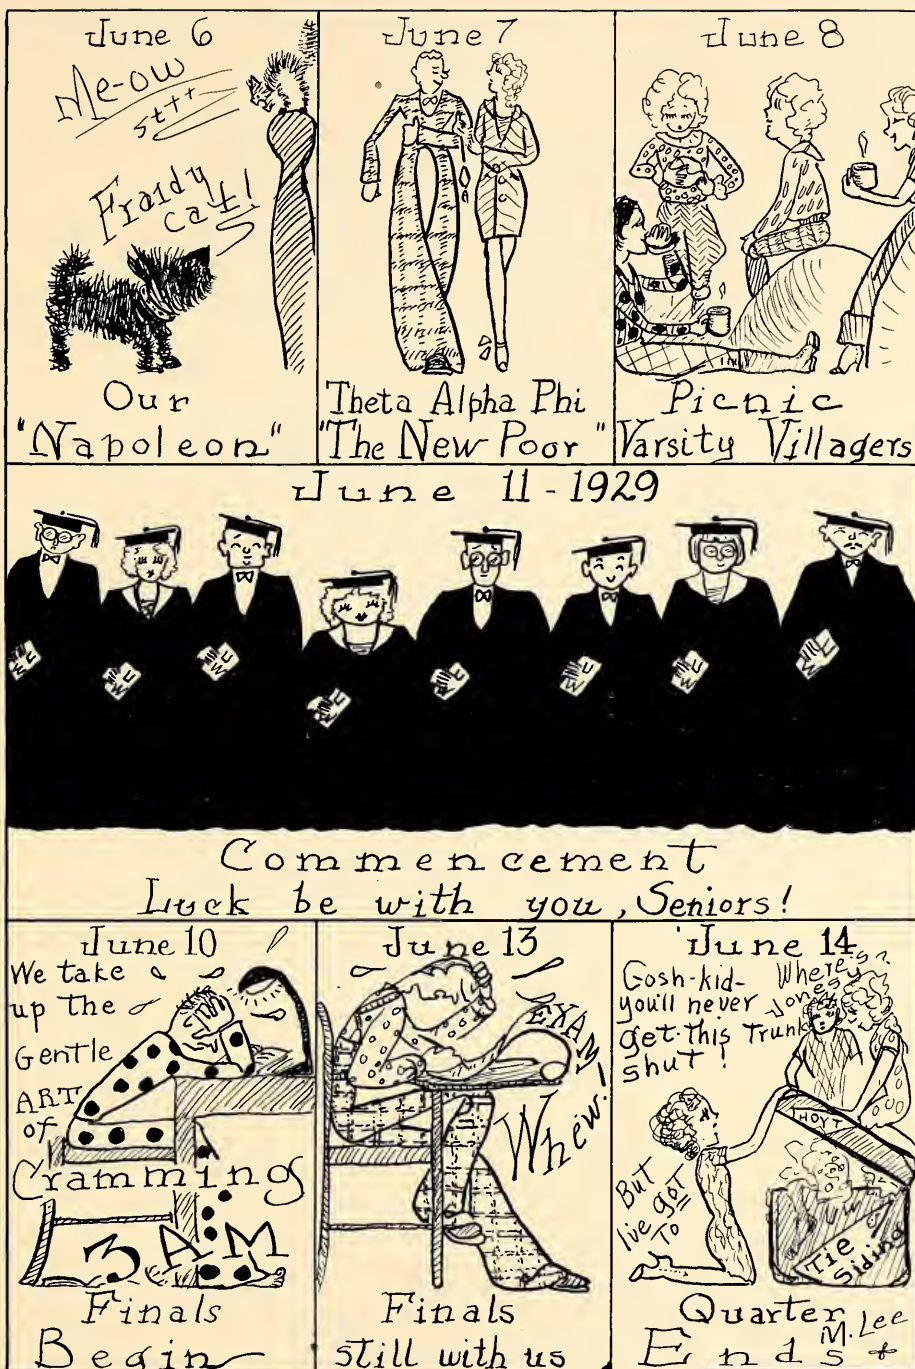 June 6
Me-ow
st++
Fraidy
cat!
Our
"Napoleon"
June 7
Theta Alpha Phi
"The New Poor"
June 8
Picnic
Varsity Villagers
June 11-1929
Commencement
Luck be with you, Seniors!
June 10
We take
up the
Gentle
ART
of
Cramming
3 AM
Finals
Begin
June 13
EXAM
Whew!
Finals
still with us
June 14
Gosh-kid-
you'll never
get this Trunk
shut!
Where's
Jonesy?
HOYT
But
I've got
To
Tie
Siding
Quarter
Ends
M. Lee